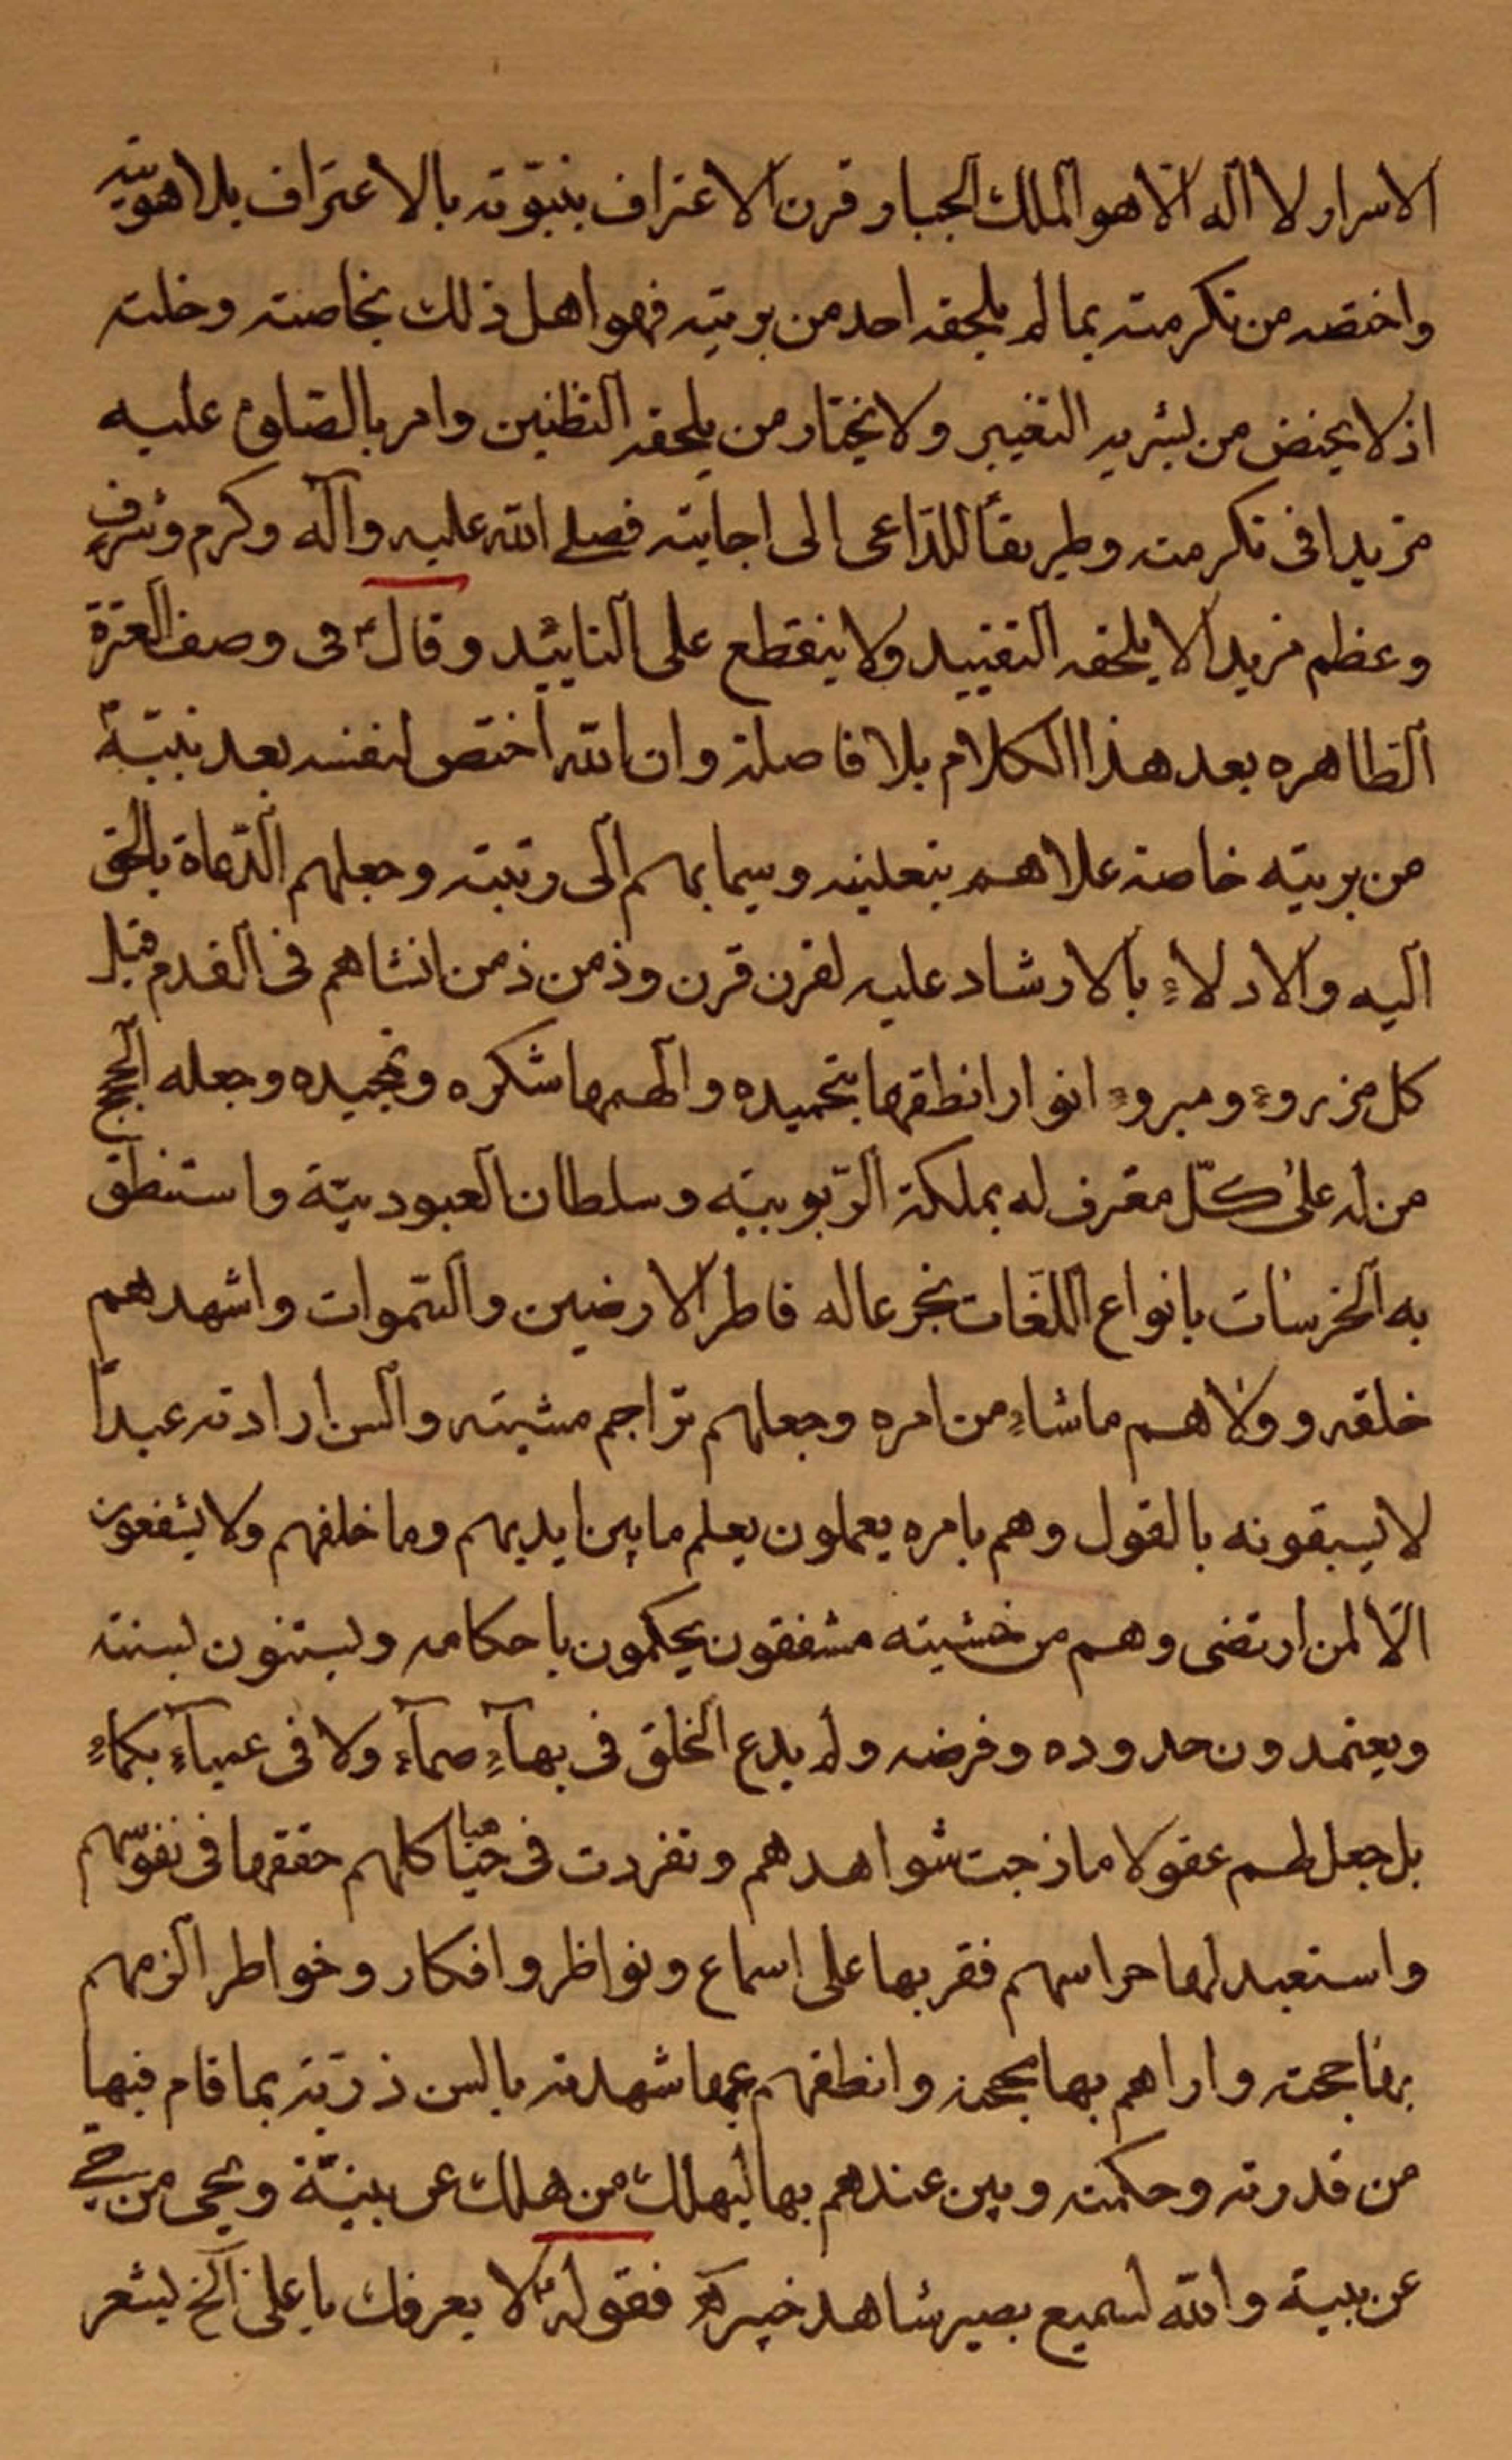 الاسرار لا اله الا هو الملك الجبار قرن الاعتراف بنبوته بالاعتراف بلاهوتيته
واختصه من تكرمته بما لم يلحقه احد من بريته فهو اهل ذلك بخاصته وخلته
اذ لا يختص من يشريه التغيير ولا يختار من يلحقه التظنين وامر بالصلوة عليه
مزيدا فى تكرمته وطريقاً للداعى الى اجابته فصلى الله عليه وآله وكرم وشرف
وعظم مزيدا لا يلحقه التفنيد ولا ينقطع على التابيد وقال فى وصف العترة
الطاهره بعد هذا الكلام بلا فاصلة وان الله اختص لنفسه بعد نبيّه
من بريته خاصة علاهم بتعليته وسما بهم الى رتبته وجعلهم الدعاة بالحق
اليه والادلاء بالارشاد عليه لقرن قرن وذمن ذمن انشاهم فى القدم قبل
كل مزروء ومبروء انوارا نطقها بتحميده والهمها شكره وتمجيده وجعله الحجج
من له على كلّ معترف له بملكة الربوبيته وسلطان العبوديّة واستنطق
به الخرسات بانواع اللغات بخرعا له فاطر الارضين والسّموات واشهدهم
خلقه وولاهم ماشاء من امره وجعلهم تراجم مشيته والسن ارادته عبدا
لا يسبقونه بالقول وهم بامره يعملون يعلم ما بين ايديهم وما خلفهم ولا يشفعون
الّا لمن ارتضى وهم من خشيته مشفقون يحكمون باحكامه ويستنون بسنته
ويعتمدون حدوده وفرضه ولم يدع الخلق فى بهآءٍ صمآء ولا فى عميآء بكماء
بل جعل لهم عقولا مازجت شواهدهم وتفردت فى هياكلهم حققها فى نفوسهم
واستعبد لها حواسهم فقر بها على اسماع ونواظر وافكار وخواطر الزمهم
بها حجته واراهم بها محجته وانطقهم عما شهدته بالسن ذرّيّة بما قام فيها
من قدرته وحكمته وبين عندهم بها ليهلك من هلك عن بينّة ويحيى من حى
عن بينة والله لسميع بصير شاهد خبير فقوله لا يعرفك يا على الخ يشعر